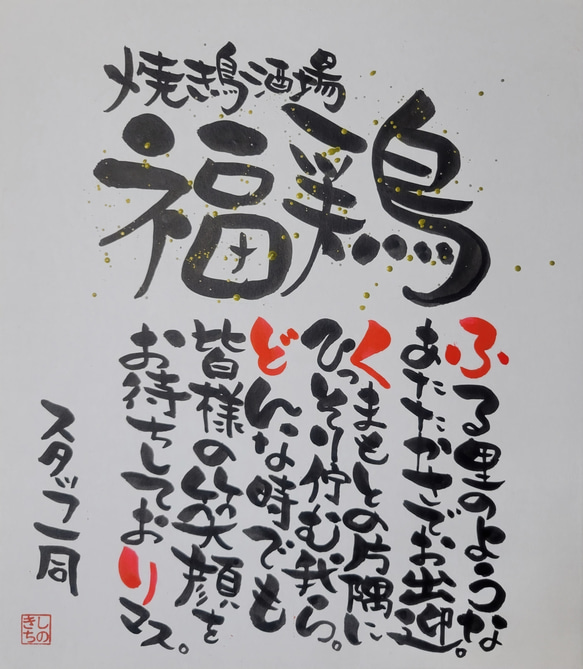 焼鳥酒場
福鶏
ふる里のような
あたたかさでお出迎。
くまもとの片隅に
ひっそり佇む我ら。
どんな時でも
皆様の笑顔を
お待ちしておりマス。
スタッフ一同
しの
きち